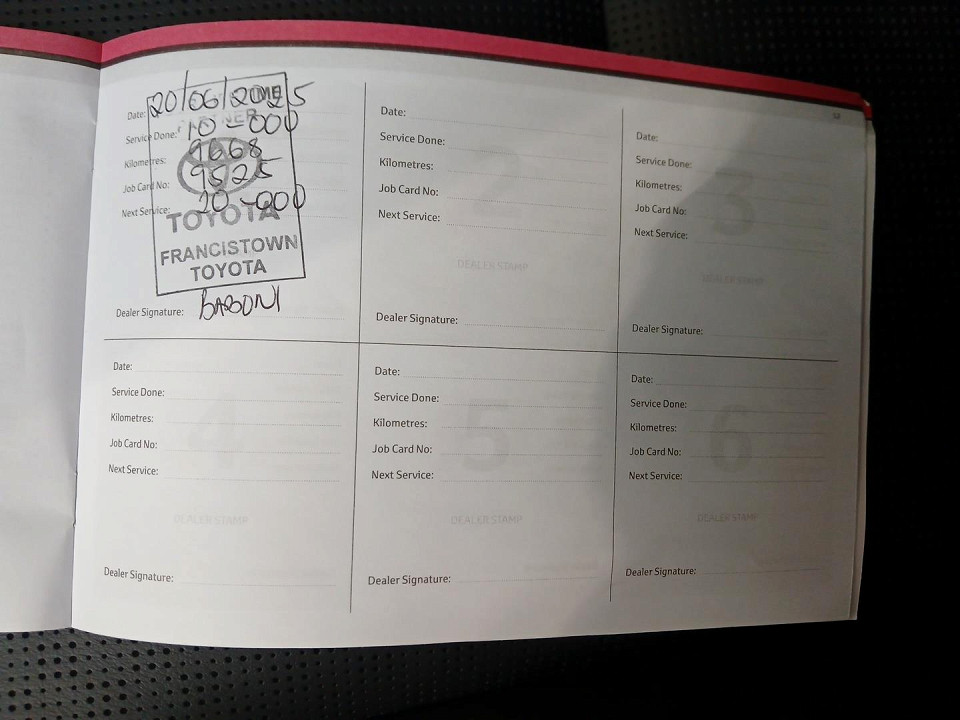 Date: 20/06/2025
Service Done: 10-000
Kilometres: 9668
Job Card No: 9525
Next Service: 20-000
TOYOTA
FRANCISTOWN
TOYOTA
Dealer Signature:
2
Date:
Service Done:
Kilometres:
Job Card No:
Next Service:
DEALER STAMP
Dealer Signature:
3
Date:
Service Done:
Kilometres:
Job Card No:
Next Service:
DEALER STAMP
Dealer Signature:
4
Date:
Service Done:
Kilometres:
Job Card No:
Next Service:
DEALER STAMP
Dealer Signature:
5
Date:
Service Done:
Kilometres:
Job Card No:
Next Service:
DEALER STAMP
Dealer Signature:
6
Date:
Service Done:
Kilometres:
Job Card No:
Next Service:
DEALER STAMP
Dealer Signature: